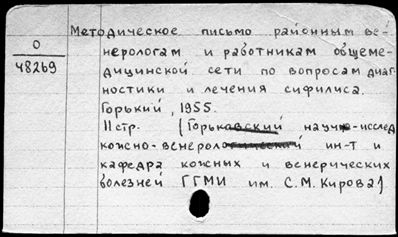 Методическое письмо районным ве-
О
48269
нерологам и работникам общеме-
дицинской сети по вопросам диаг-
ностики и лечения сифилиса.
Горький, 1955.
11 стр. (Горьковский научн-исслед
кожно-венерологический ин-т и
кафедра кожных и венерических
болезней ГГМИ им. С.М.Кирова)